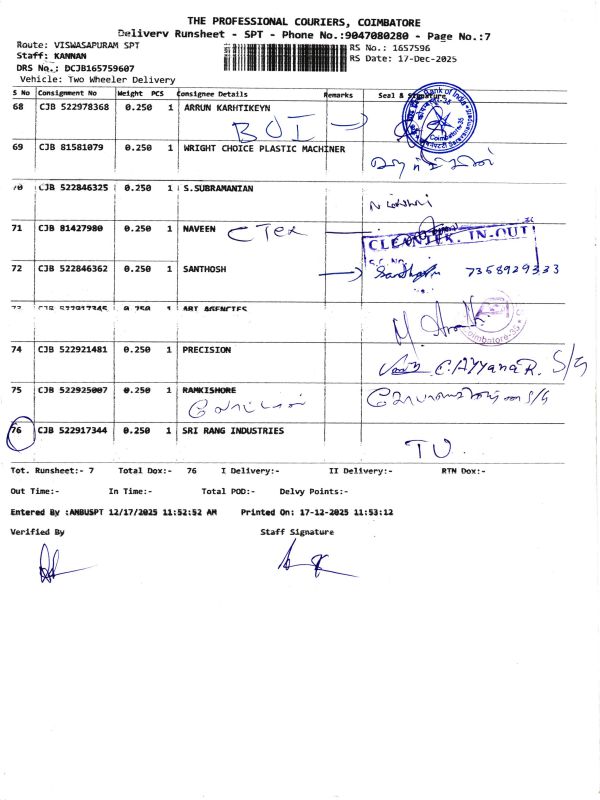 THE PROFESSIONAL COURIERS, COIMBATORE
Delivery Runsheet - SPT - Phone No.:9047080280 - Page No.:7
Route: VISWASAPURAM SPT
Staff: KANNAN
DRS No.: DCJB165759607
Vehicle: Two Wheeler Delivery
RS No.: 1657596
RS Date: 17-Dec-2025
S No Consignment No Weight PCS Consignee Details Remarks Seal & Signature
68 CJB 522978368 0.250 1 ARRUN KARHTIKEYN
BOI
Bank of India
Coimbatore-35
69 CJB 81581079 0.250 1 WRIGHT CHOICE PLASTIC MACHINER
70 CJB 522846325 0.250 1 S.SUBRAMANIAN
71 CJB 81427980 0.250 1 NAVEEN
CLEANTEK. IN-OUT
72 CJB 522846362 0.250 1 SANTHOSH
7358929333
73 CJB 522917345 0.250 1 ABI AGENCIES
Coimbatore-35
74 CJB 522921481 0.250 1 PRECISION
C. AYYANAR. S/G
75 CJB 522925007 0.250 1 RAMKISHORE
S/G
76 CJB 522917344 0.250 1 SRI RANG INDUSTRIES
TU.
Tot. Runsheet:- 7 Total Dox:- 76 I Delivery:- II Delivery:- RTN Dox:-
Out Time:- In Time:- Total POD:- Delvy Points:-
Entered By :ANBUSPT 12/17/2025 11:52:52 AM Printed On: 17-12-2025 11:53:12
Verified By Staff Signature